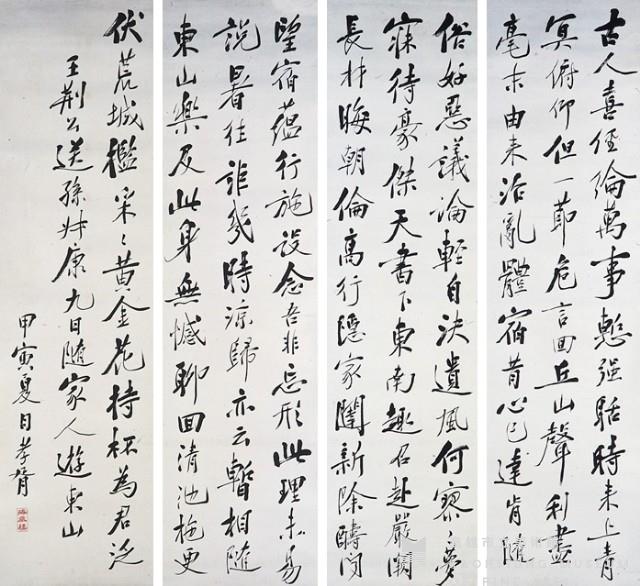 古人喜經綸萬事慙强聒時来上青
冥俯仰但一節危言回丘山聲利盡
毫末由来治亂體宿昔心已達肯随
俗好惡議論輕自決遺風何寥夢
寐待豪傑天書下東南趣召赴嚴闕
長材晦朝倫高行隱家闥新除疇聞
望宿蘊行施設念吾非忘形此理未易
說暑往詎幾時涼歸亦云暫相随
東山樂及此身無憾聊回清池柂更
伏荒城檻采〻黄金花持杯為君泛
王荊公送孫叔康九日随家人遊東山
甲寅夏日孝胥